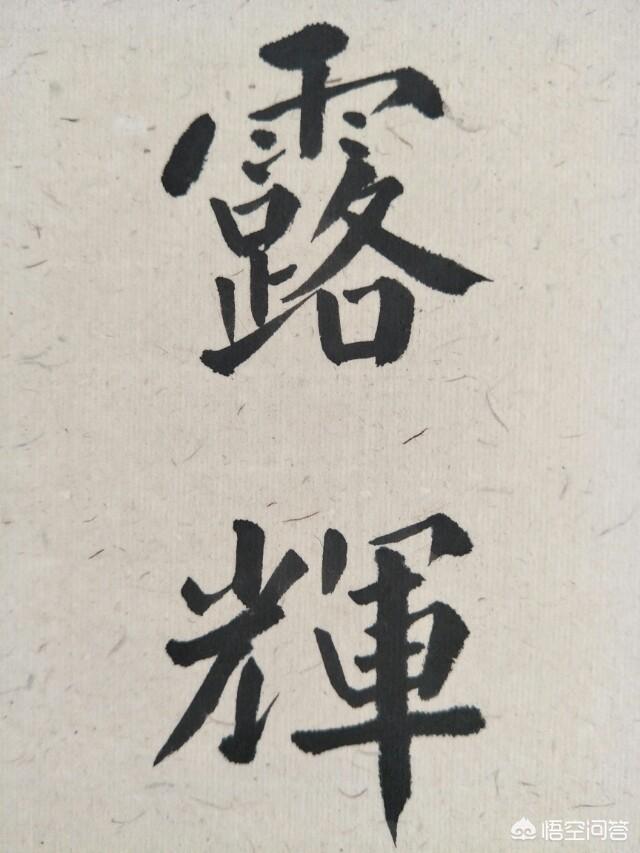 露
輝
悟空问答